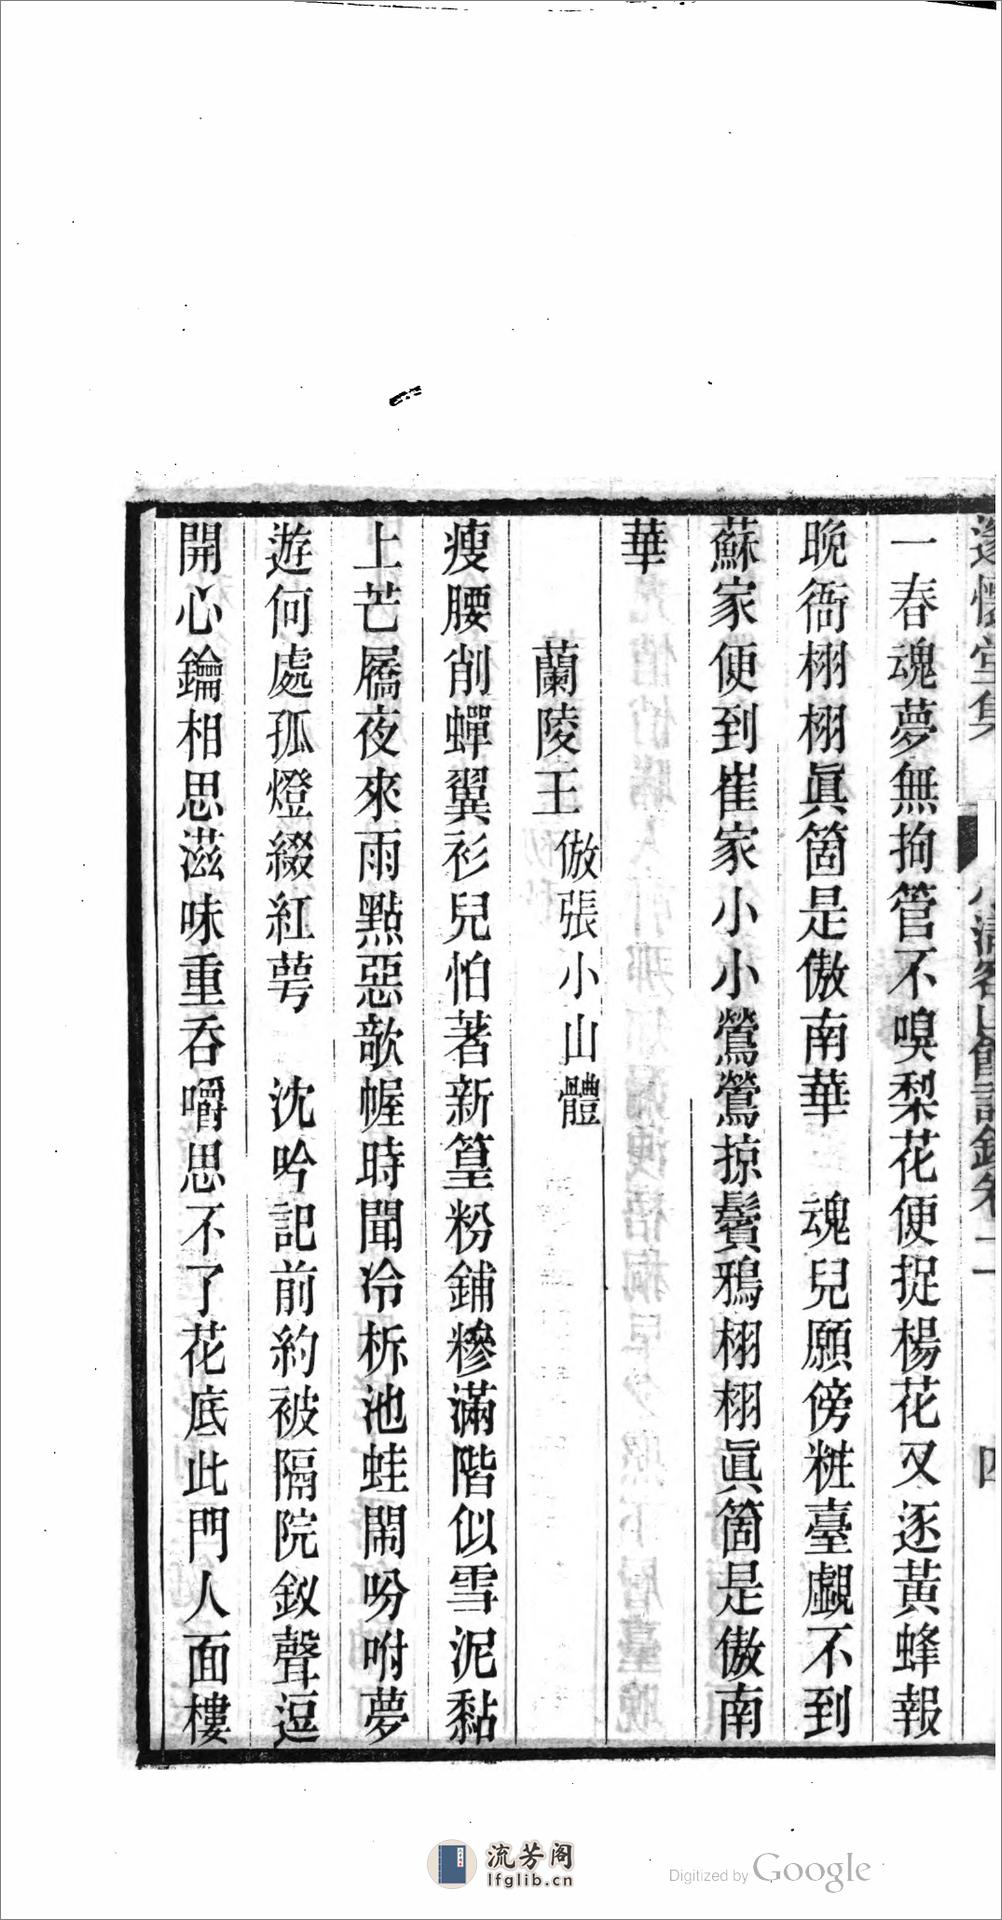 一春魂夢無拘管不嗅梨花便捉楊花又逐黃蜂報
晚衙栩栩眞箇是傲南華　魂兒願傍粧臺覷不到
蘇家便到崔家小小鶯鶯掠鬢鴉栩栩眞箇是傲南
華
蘭陵王　倣張小山體
瘦腰削蟬翼衫兒怕著新篁粉鋪糝滿階似雪泥黏
上芒屩夜來雨點惡歆幄時聞冷柝池蛙鬧吩咐夢
遊何處孤燈綴紅萼　沈吟記前約被隔院釵聲逗
開心鑰相思滋味重吞嚼思不了花底此門人面樓
流芳阁
lfglib.cn
Digitized by Google